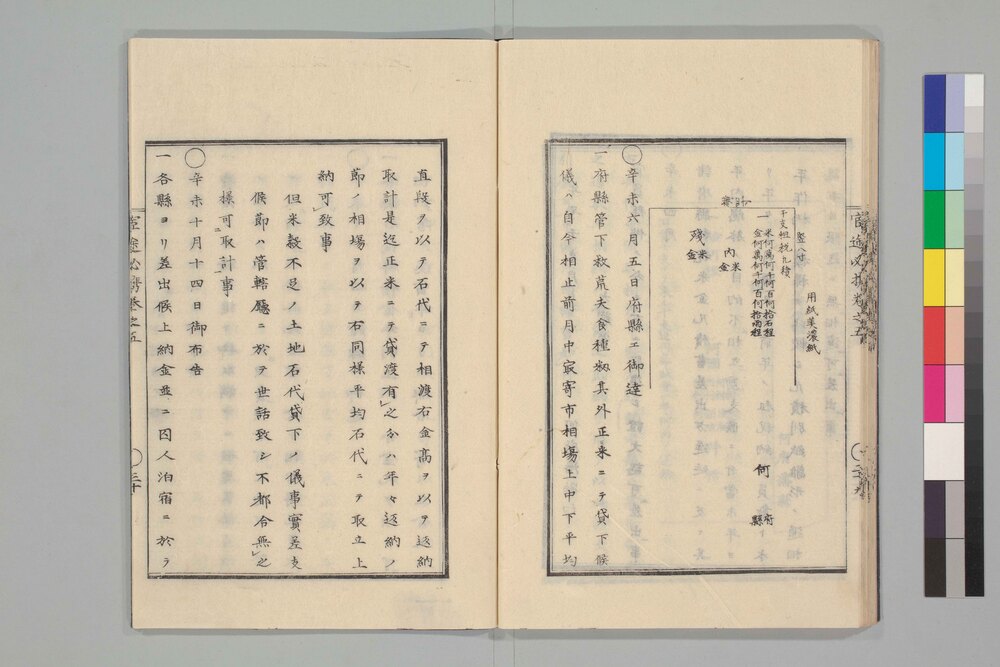 用紙美濃紙
竪八寸
干支租税九積
一米何萬何千何百何拾石程
金何萬何千何百何拾両程
内米
金
残米
金
何府
縣
〇辛未六月五日府縣エ御達
一府縣管下救荒夫食種籾其外正米ニテ貸下候
儀ハ自今相止前月中最寄市相場上中下平均
直段ヲ以テ石代ニテ相渡石金高ヲ以テ返納
取計是迄正米ニテ貸渡有之分ハ年々返納ノ
節ノ相場ヲ以テ右同様平均石代ニテ取立上
納可致事
但米穀不足ノ土地石代貸下ノ儀事實差支
候節ハ管轄廳ニ於テ世話致シ不都合無之
様可取計事
〇辛未十月十四日御布告
一各縣ヨリ差出候上納金並ニ囚人泊宿ニ於テ
三十